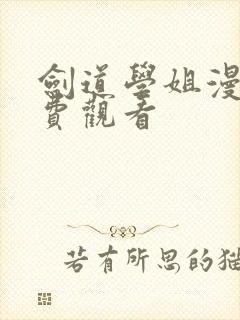 劍道學姐漫
費觀看
若有所思的猫